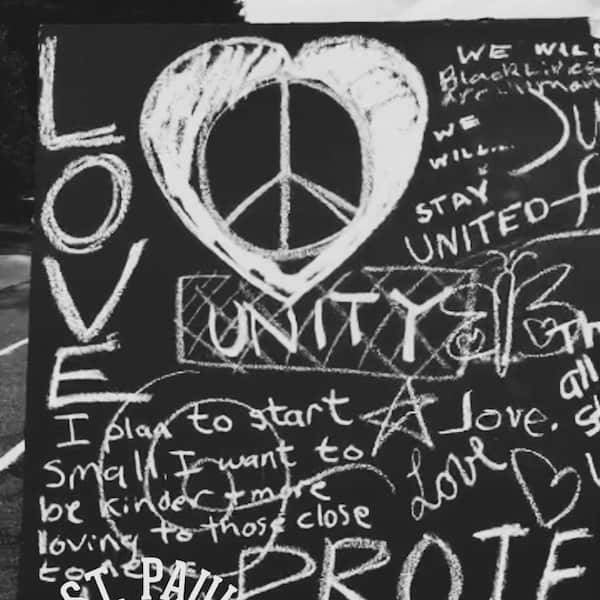 LOVE
WE WILL
Black Lives
WE
WILL...
STAY
UNITED
UNITY
I plan to start
small. I want to
be kinder + more
loving to those close
to me
love.
Love
all
PROTE
ST. PAUL